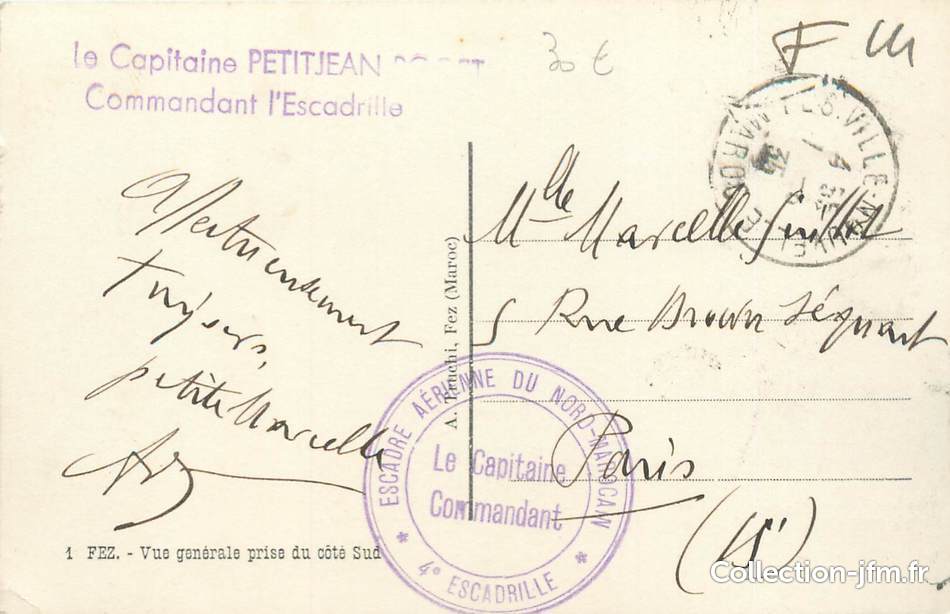 le Capitaine PETITJEAN
Commandant l'Escadrille
30 €
F M
FES-VILLE-NOUVELLE
MAROC
Affectueusement
Toujours,
petite Marcelle
A. Fenchi, Fez (Maroc)
Mlle Marcelle Guillot
5 Rue Brown Séquart
Paris
(15e)
ESCADRE AÉRIENNE DU NORD-MAROCAIN
Le Capitaine
Commandant
* 4e ESCADRILLE *
1 FEZ. - Vue generale prise du côté Sud
Collection-jfm.fr